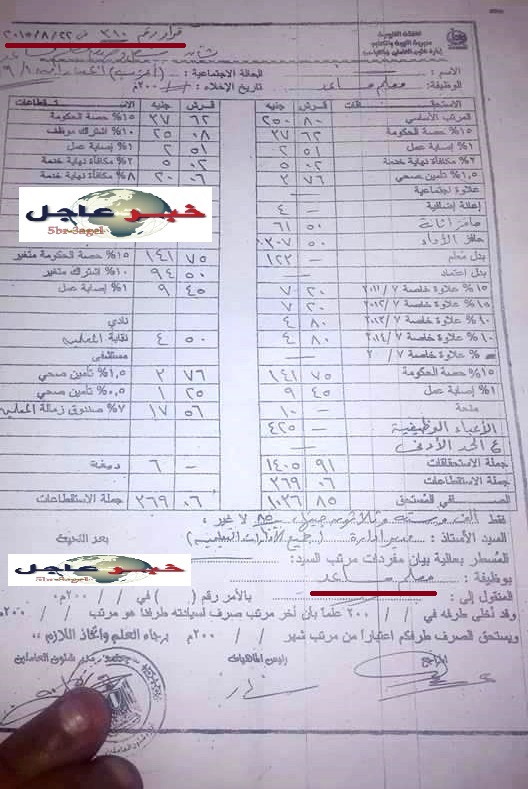 قرار رقم ٣١٠ في ٢٠١٥/٨/٢٢
محافظة القليوبية
مديرية التربية والتعليم
الاسم :
الوظيفة : معلم مساعد
الحالة الاجتماعية :
تاريخ الإخلاء : / / ٢٠٠م
جنيه قرش الاستحقاقات
٢٥٠ ٨٠ المرتب الأساسي
٣٧ ٦٢ ١٥% حصة الحكومة
٢ ٥١ ١% إصابة عمل
٥ ٠٢ ٢% مكافأة نهاية خدمة
٣ ٧٦ ١,٥% تأمين صحي
علاوة اجتماعية
٤ – إعانة إضافية
٦١ ٥٠ حافز إثابة
٥٠ حافز الأداء
١٢٣ – بدل معلم
بدل اعتماد
٧ ٢٠ ١٥% علاوة خاصة ٢٠١١/٧
٧ ٢٠ ١٥% علاوة خاصة ٢٠١٢/٧
٤ ٨٠ ١٠% علاوة خاصة ٢٠١٣/٧
٤ ٨٠ ١٠% علاوة خاصة ٢٠١٤/٧
% علاوة خاصة ٧/ ٢٠
١٤١ ٧٥ ١٥% حصة الحكومة
٩ ٤٥ ١% إصابة عمل
١٠ – منحة
٤٢٥ – الأعباء الوظيفية
ع الحد الأدنى
١٤٠٥ ٩١ جملة الاستحقاقات
٣٦٩ ٠٦ جملة الاستقطاعات
١٠٣٦ ٨٥ الصافي المستحق
جنيه قرش الاستقطاعات
٣٧ ٦٢ ١٥% حصة الحكومة
٢٥ ٠٨ ١٠% اشتراك موظف
٢ ٥١ ١% إصابة عمل
٥ ٠٢ ٢% مكافأة نهاية خدمة
٢٠ ٠٦ ٨% مكافأة نهاية خدمة
خبر عاجل
5br-3agel
١٤١ ٧٥ ١٥% حصة الحكومة متغير
٩٤ ٥٠ ١٠% اشتراك متغير
٩ ٤٥ ١% إصابة عمل
نادي
٤ ٥٠ نقابة المعلمين
مستشفى
٢ ٧٦ ١,٥% تأمين صحي
١ ٢٥ ٠,٥% تأمين صحي
١٧ ٥٦ ٧% صندوق زمالة المعلمين
٦ – دمغة
٣٦٩ ٠٦ جملة الاستقطاعات
فقط ألف وستة وثلاثون جنيها ٨٥ لا غير ،
السيد الأستاذ : مدير إدارة (جميع الإدارات التعليمية) بعد التحية
المسطر بعالية بيان مفردات مرتب السيد:
خبر عاجل
5br-3agel
بوظيفة : معلم مساعد
المنقول إلى : بالأمر رقم ( ) في / / ٢٠٠م .
وقد أخلى طرفه في / / ٢٠٠ علما بأن آخر مرتب صرف لسيادته طرفنا هو مرتب / / ٢٠٠م
ويستحق الصرف طرفكم اعتبارا من مرتب شهر / / ٢٠٠م برجاء العلم واتخاذ اللازم ،،
المراجع رئيس الماهيات مدير شئون العاملين